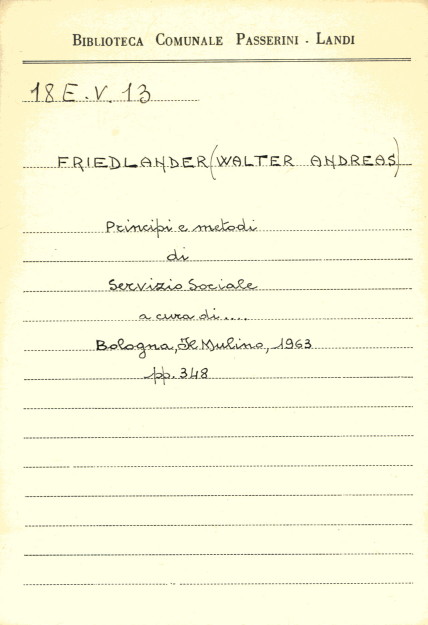 BIBLIOTECA COMUNALE PASSERINI - LANDI
18 E. V. 13
FRIEDLANDER (WALTER ANDREAS)
Principi e metodi
di
Servizio Sociale
a cura di....
Bologna, Il Mulino, 1963
pp. 348